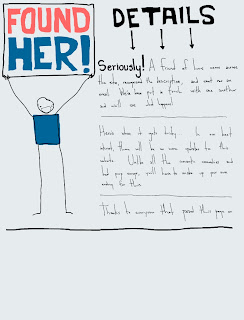 FOUND
HER!
DETAILS
Seriously! A friend of hers came across
the site, recognized the description, and sent me an
email. We've been put in touch with one another
and we'll see what happens.
Here's where it gets tricky. In our best
interest, there will be no more updates to this
website. Unlike all the romantic comedies and
bad pop songs, you'll have to make up your own
ending for this.
Thanks to everyone that passed this page on